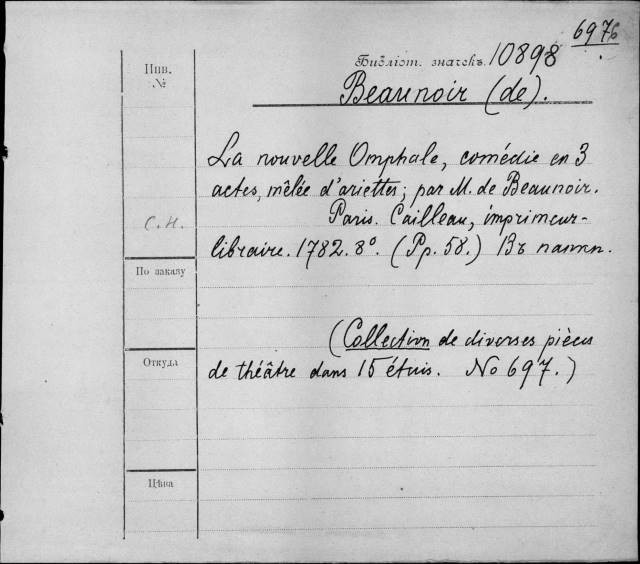 6976
Библіот. значекъ 10898
Инв.
№
Beaunoir (de).
La nouvelle Omphale, comédie en 3
actes, mêlée d'ariettes; par M. de Beaunoir.
Paris. Cailleau, imprimeur-
С.Н.
libraire. 1782. 8°. (Pp. 58.) Въ папкѣ.
По заказу
(Collection de diverses pièces
Откуда
de théâtre dans 15 étuis. No 697.)
Цѣна